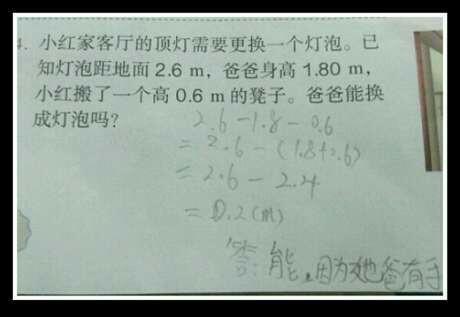 4. 小红家客厅的顶灯需要更换一个灯泡。已
知灯泡距地面 2.6 m，爸爸身高 1.80 m，
小红搬了一个高 0.6 m 的凳子。爸爸能换
成灯泡吗？
2.6-1.8-0.6
=2.6-(1.8+0.6)
=2.6-2.4
=0.2(m)
答:能,因为她爸有手